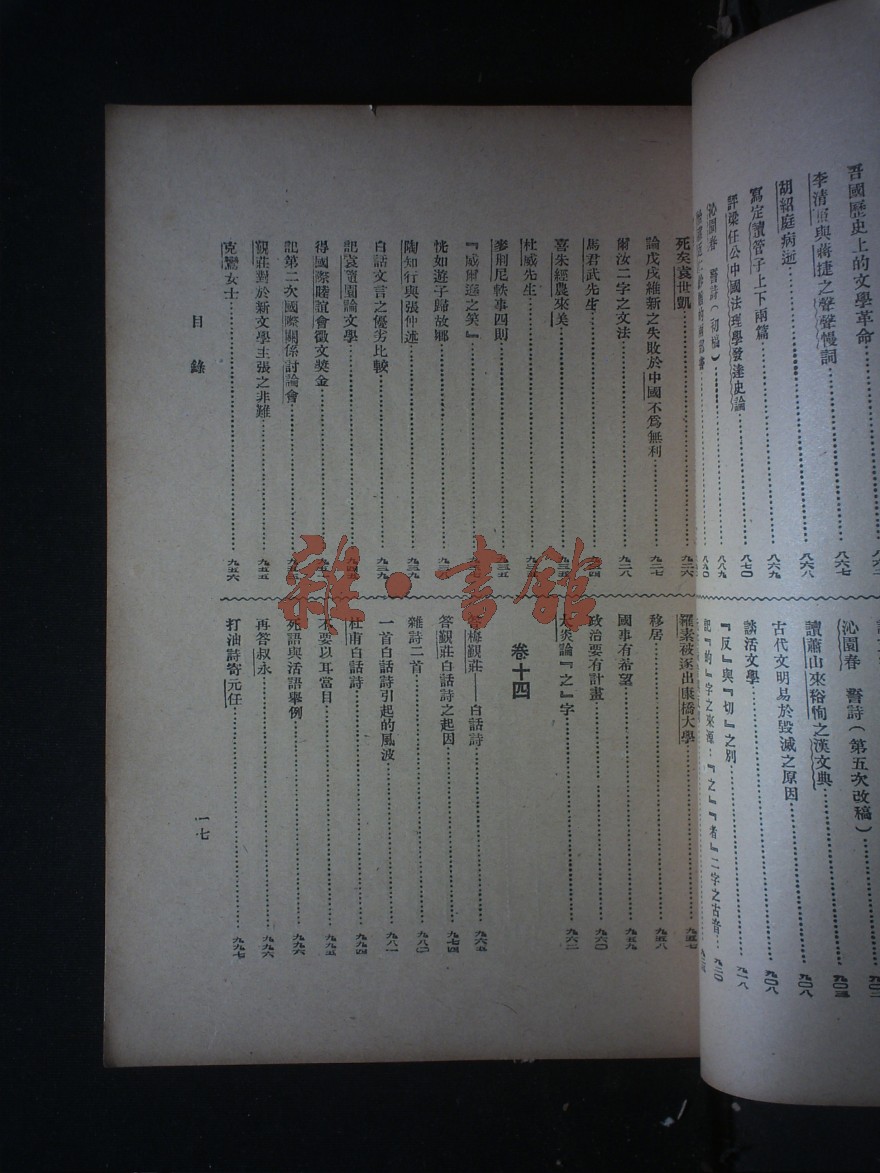 吾國歷史上的文學革命
李清照與蔣捷之聲聲慢詞……八六七
胡紹庭病逝……八六八
寫定讀管子上下兩篇……八六九
評梁任公中國法理學發達史論……八七〇
沁園春 誓詩（初稿）……八八九
沁園春 誓詩（第五次改稿）……九〇三
讀蕭山來裕恂之漢文典……九〇八
古代文明易於毀滅之原因……九〇八
談活文學……九一八
『反』與『切』之別……九二〇
記『的』字之來源：『之』『者』二字之古音
死矣袁世凱……九二六
論戊戌維新之失敗於中國不爲無利……九二七
爾汝二字之文法……九二八
馬君武先生
喜朱經農來美
杜威先生
麥荊尼軼事四則
『威爾遜之笑』
恍如遊子歸故鄉
陶知行與張仲述……九三九
白話文言之優劣比較……九三九
記袁隨園論文學
得國際睦誼會徵文獎金
記第二次國際關係討論會
覲莊對於新文學主張之非難……九五五
克鸞女士……九五六
羅素被逐出康橋大學……九五七
移居……九五八
國事有希望……九五九
政治要有計畫……九六〇
太炎論『之』字……九六二
卷十四
答梅覲莊——白話詩……九六五
答覲莊白話詩之起因……九七四
雜詩二首……九八〇
一首白話詩引起的風波……九八一
杜甫白話詩……九九四
不要以耳當目……九九五
死語與活語舉例……九九六
再答叔永……九九六
打油詩寄元任……九九七
目錄
一七
雜·書館